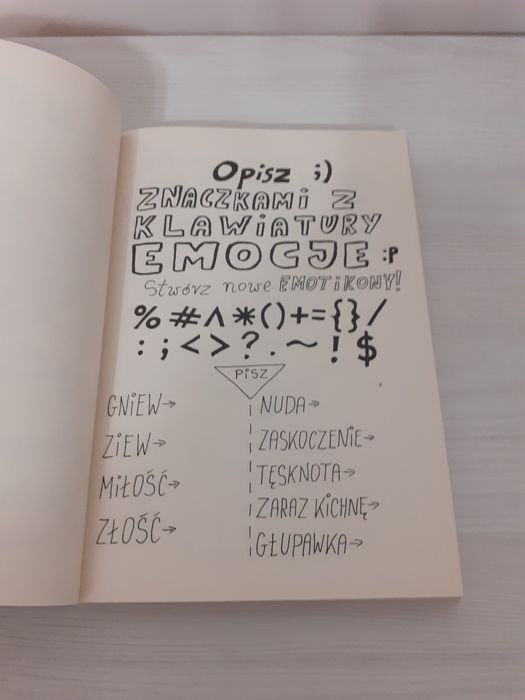 Opisz ;)
ZNACZKAMi Z
KLAWiATURY
EMOCJE :P
Stwórz nowe EMOTiKONY!
% # ^ * ( ) + = { } /
: ; < > ? . ~ ! $
PiSZ
GNiEW→
ZiEW→
MiŁOŚĆ→
ZŁOŚĆ→
NUDA→
ZASKOCZENiE→
TĘSKNOTA→
ZARAZ KiCHNĘ→
GŁUPAWKA→